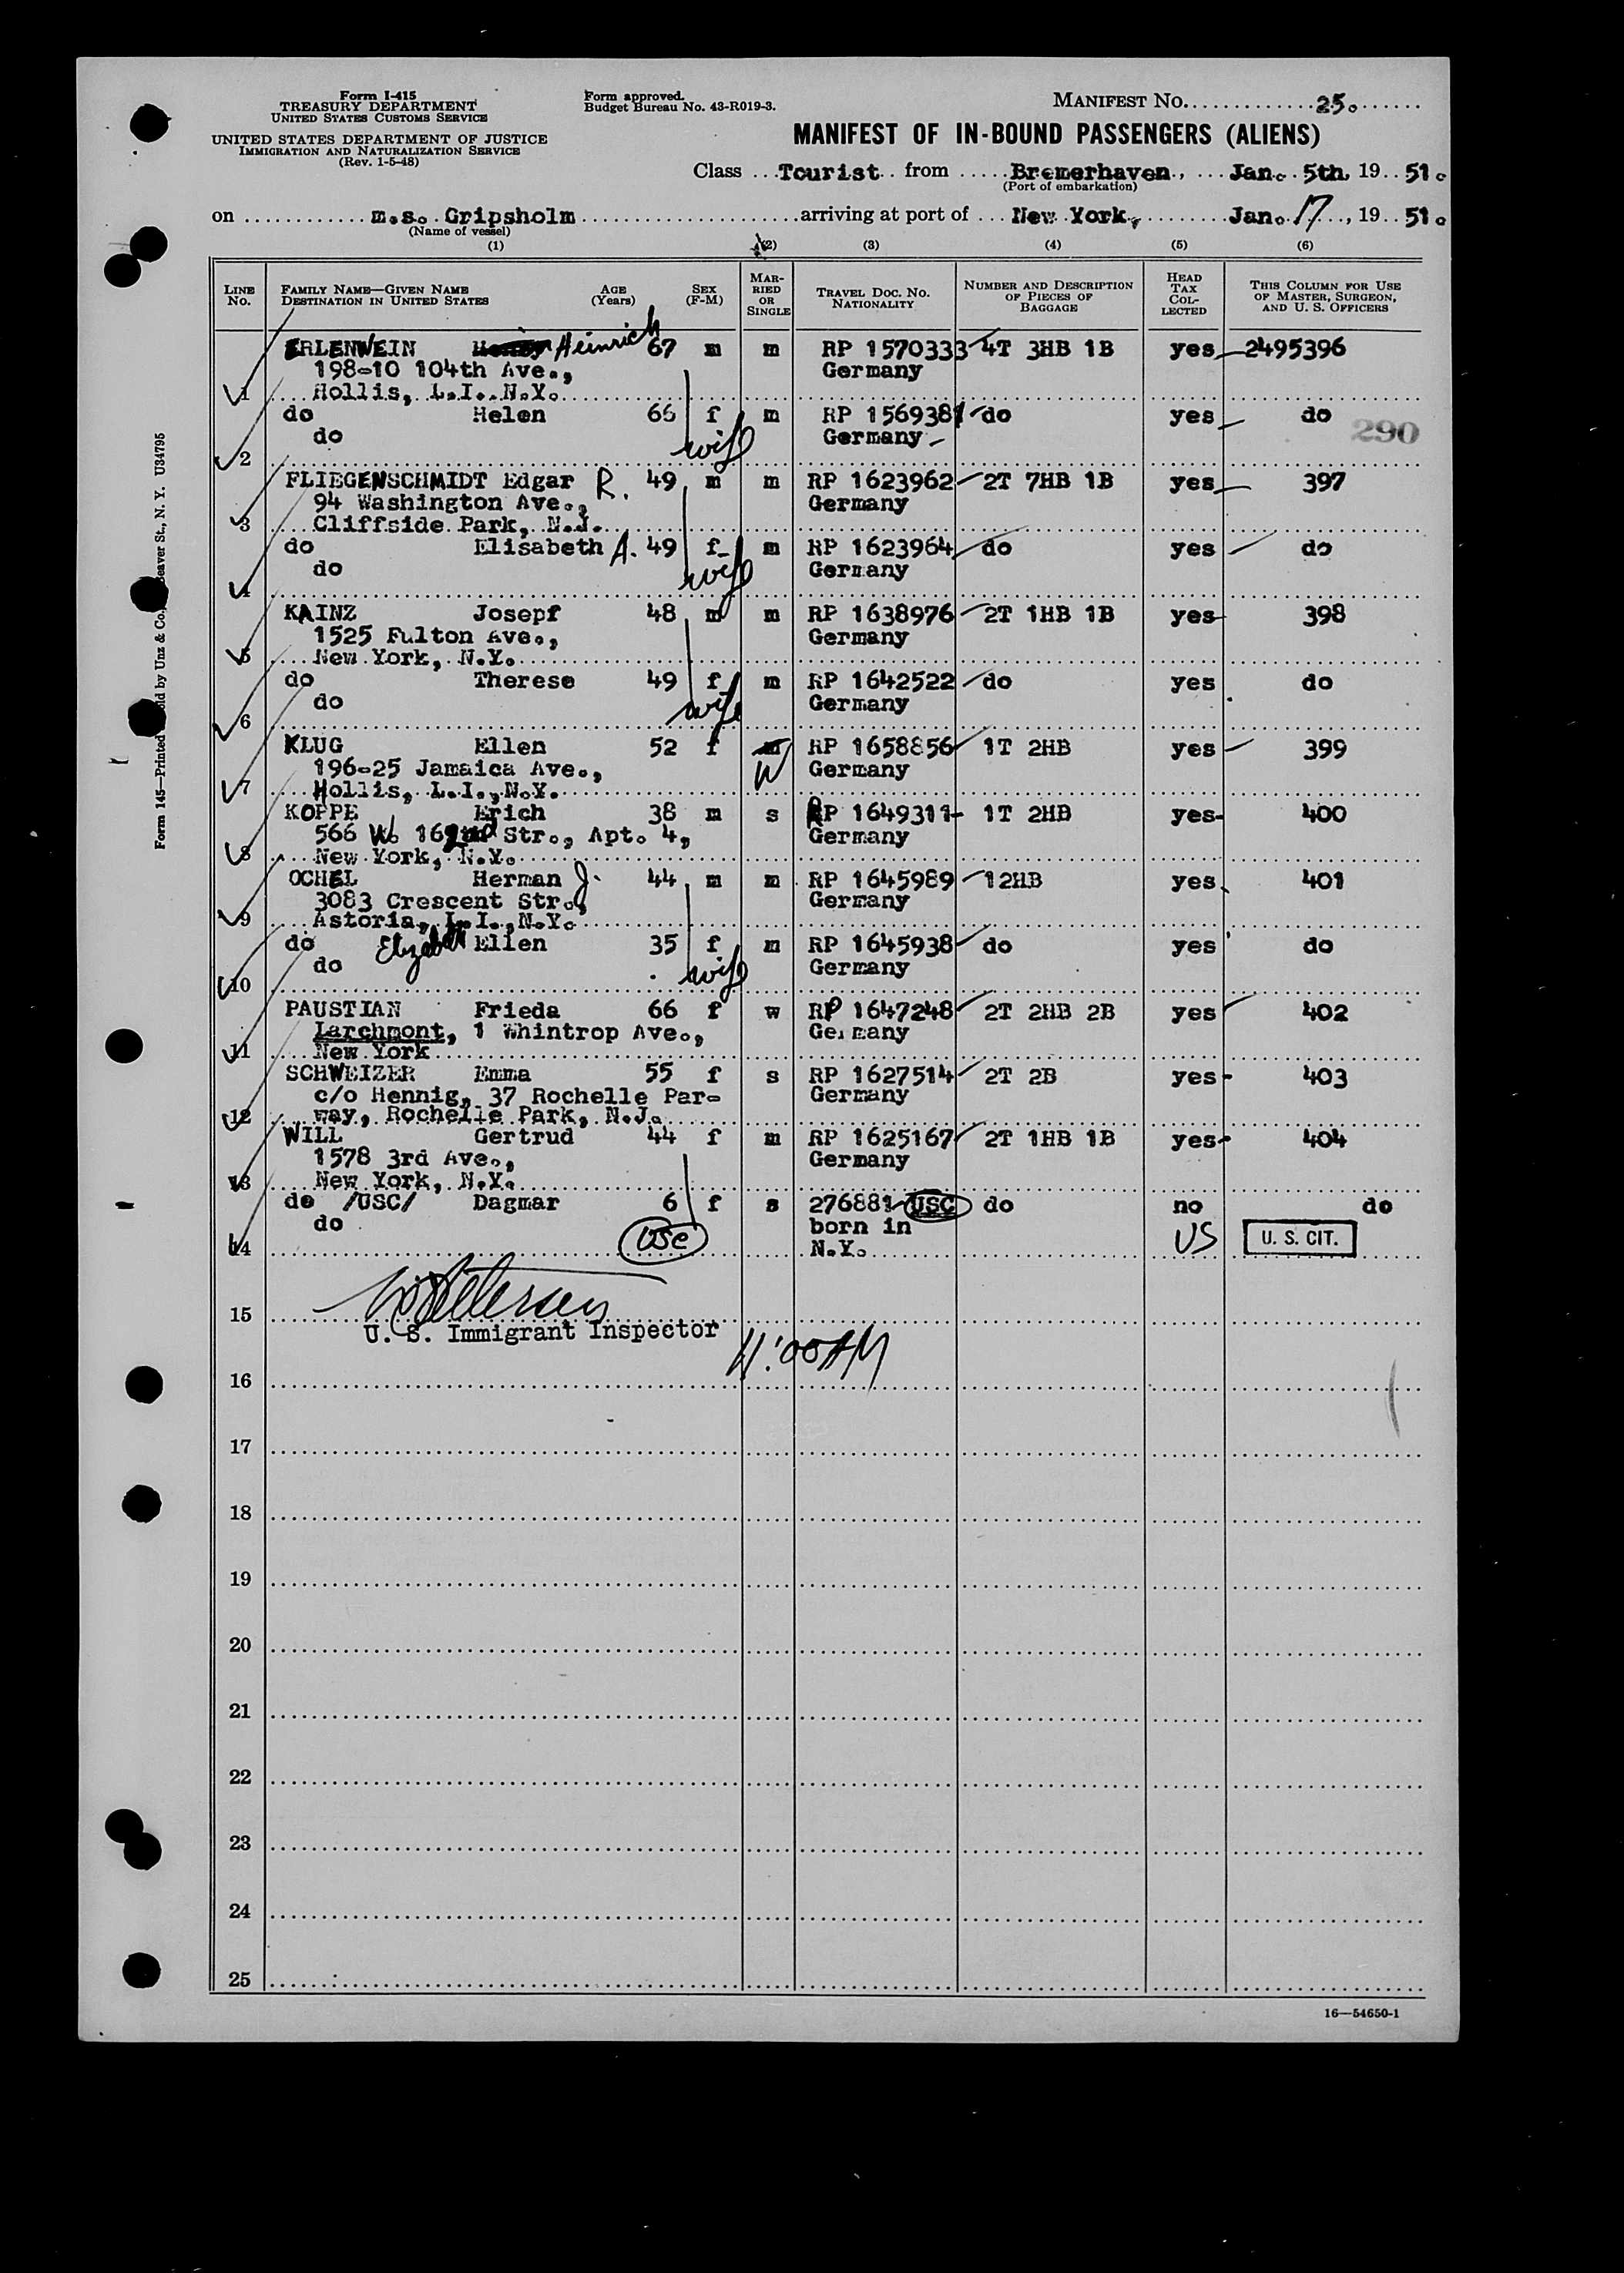 Form I-415
TREASURY DEPARTMENT
UNITED STATES CUSTOMS SERVICE
UNITED STATES DEPARTMENT OF JUSTICE
IMMIGRATION AND NATURALIZATION SERVICE
(Rev. 1-5-48)
Form approved.
Budget Bureau No. 43-R019-3.
MANIFEST NO. 25.
MANIFEST OF IN-BOUND PASSENGERS (ALIENS)
Class Tourist from Bremerhaven, Jan. 5th, 19 51.
(Port of embarkation)
on m.s. Gripsholm arriving at port of New York, Jan. 17, 19 51.
(Name of vessel)
(1) (2) (3) (4) (5) (6)
LINE No. FAMILY NAME—GIVEN NAME DESTINATION IN UNITED STATES AGE (Years) SEX (F-M) MARRIED OR SINGLE TRAVEL DOC. NO. NATIONALITY NUMBER AND DESCRIPTION OF PIECES OF BAGGAGE HEAD TAX COLLECTED THIS COLUMN FOR USE OF MASTER, SURGEON, AND U. S. OFFICERS
ERLENWEIN Heinrich 67 m m RP 1570333 4T 3HB 1B yes 2495396
198-10 104th Ave., Germany
1 Hollis, L.I. N.Y.
do Helen 66 f m RP 1569381 do yes do
do wife Germany 290
2
FLIEGENSCHMIDT Edgar R. 49 m m RP 1623962 2T 7HB 1B yes 397
94 Washington Ave., Germany
3 Cliffside Park, N.J.
do Elisabeth A. 49 f m RP 1623964 do yes do
do wife Germany
4
KAINZ Josepf 48 m m RP 1638976 2T 1HB 1B yes 398
1525 Fulton Ave., Germany
5 New York, N.Y.
do Therese 49 f m RP 1642522 do yes do
do wife Germany
6
KLUG Ellen 52 f m RP 1658856 1T 2HB yes 399
196-25 Jamaica Ave., W Germany
7 Hollis, L.I., N.Y.
KOPPE Erich 38 m s RP 1649311 1T 2HB yes 400
566 W. 162nd Str., Apt. 4, Germany
8 New York, N.Y.
OCHEL Herman J. 44 m m RP 1645989 12HB yes 401
3083 Crescent Str., Germany
9 Astoria, L.I., N.Y.
do Elizabeth Ellen 35 f m RP 1645938 do yes do
do wife Germany
10
PAUSTIAN Frieda 66 f w RP 1647248 2T 2HB 2B yes 402
Larchmont, 1 Whintrop Ave., Germany
11 New York
SCHWEIZER Emma 55 f s RP 1627514 2T 2B yes 403
c/o Hennig, 37 Rochelle Par- Germany
12 way, Rochelle Park, N.J.
WILL Gertrud 44 f m RP 1625167 2T 1HB 1B yes 404
1578 3rd Ave., Germany
13 New York, N.Y.
do /USC/ Dagmar 6 f s 276881 USC do no do
do USC born in US U. S. CIT.
14 N.Y.
15
U. S. Immigrant Inspector
11:00 AM
16
17
18
19
20
21
22
23
24
25
16—54650-1